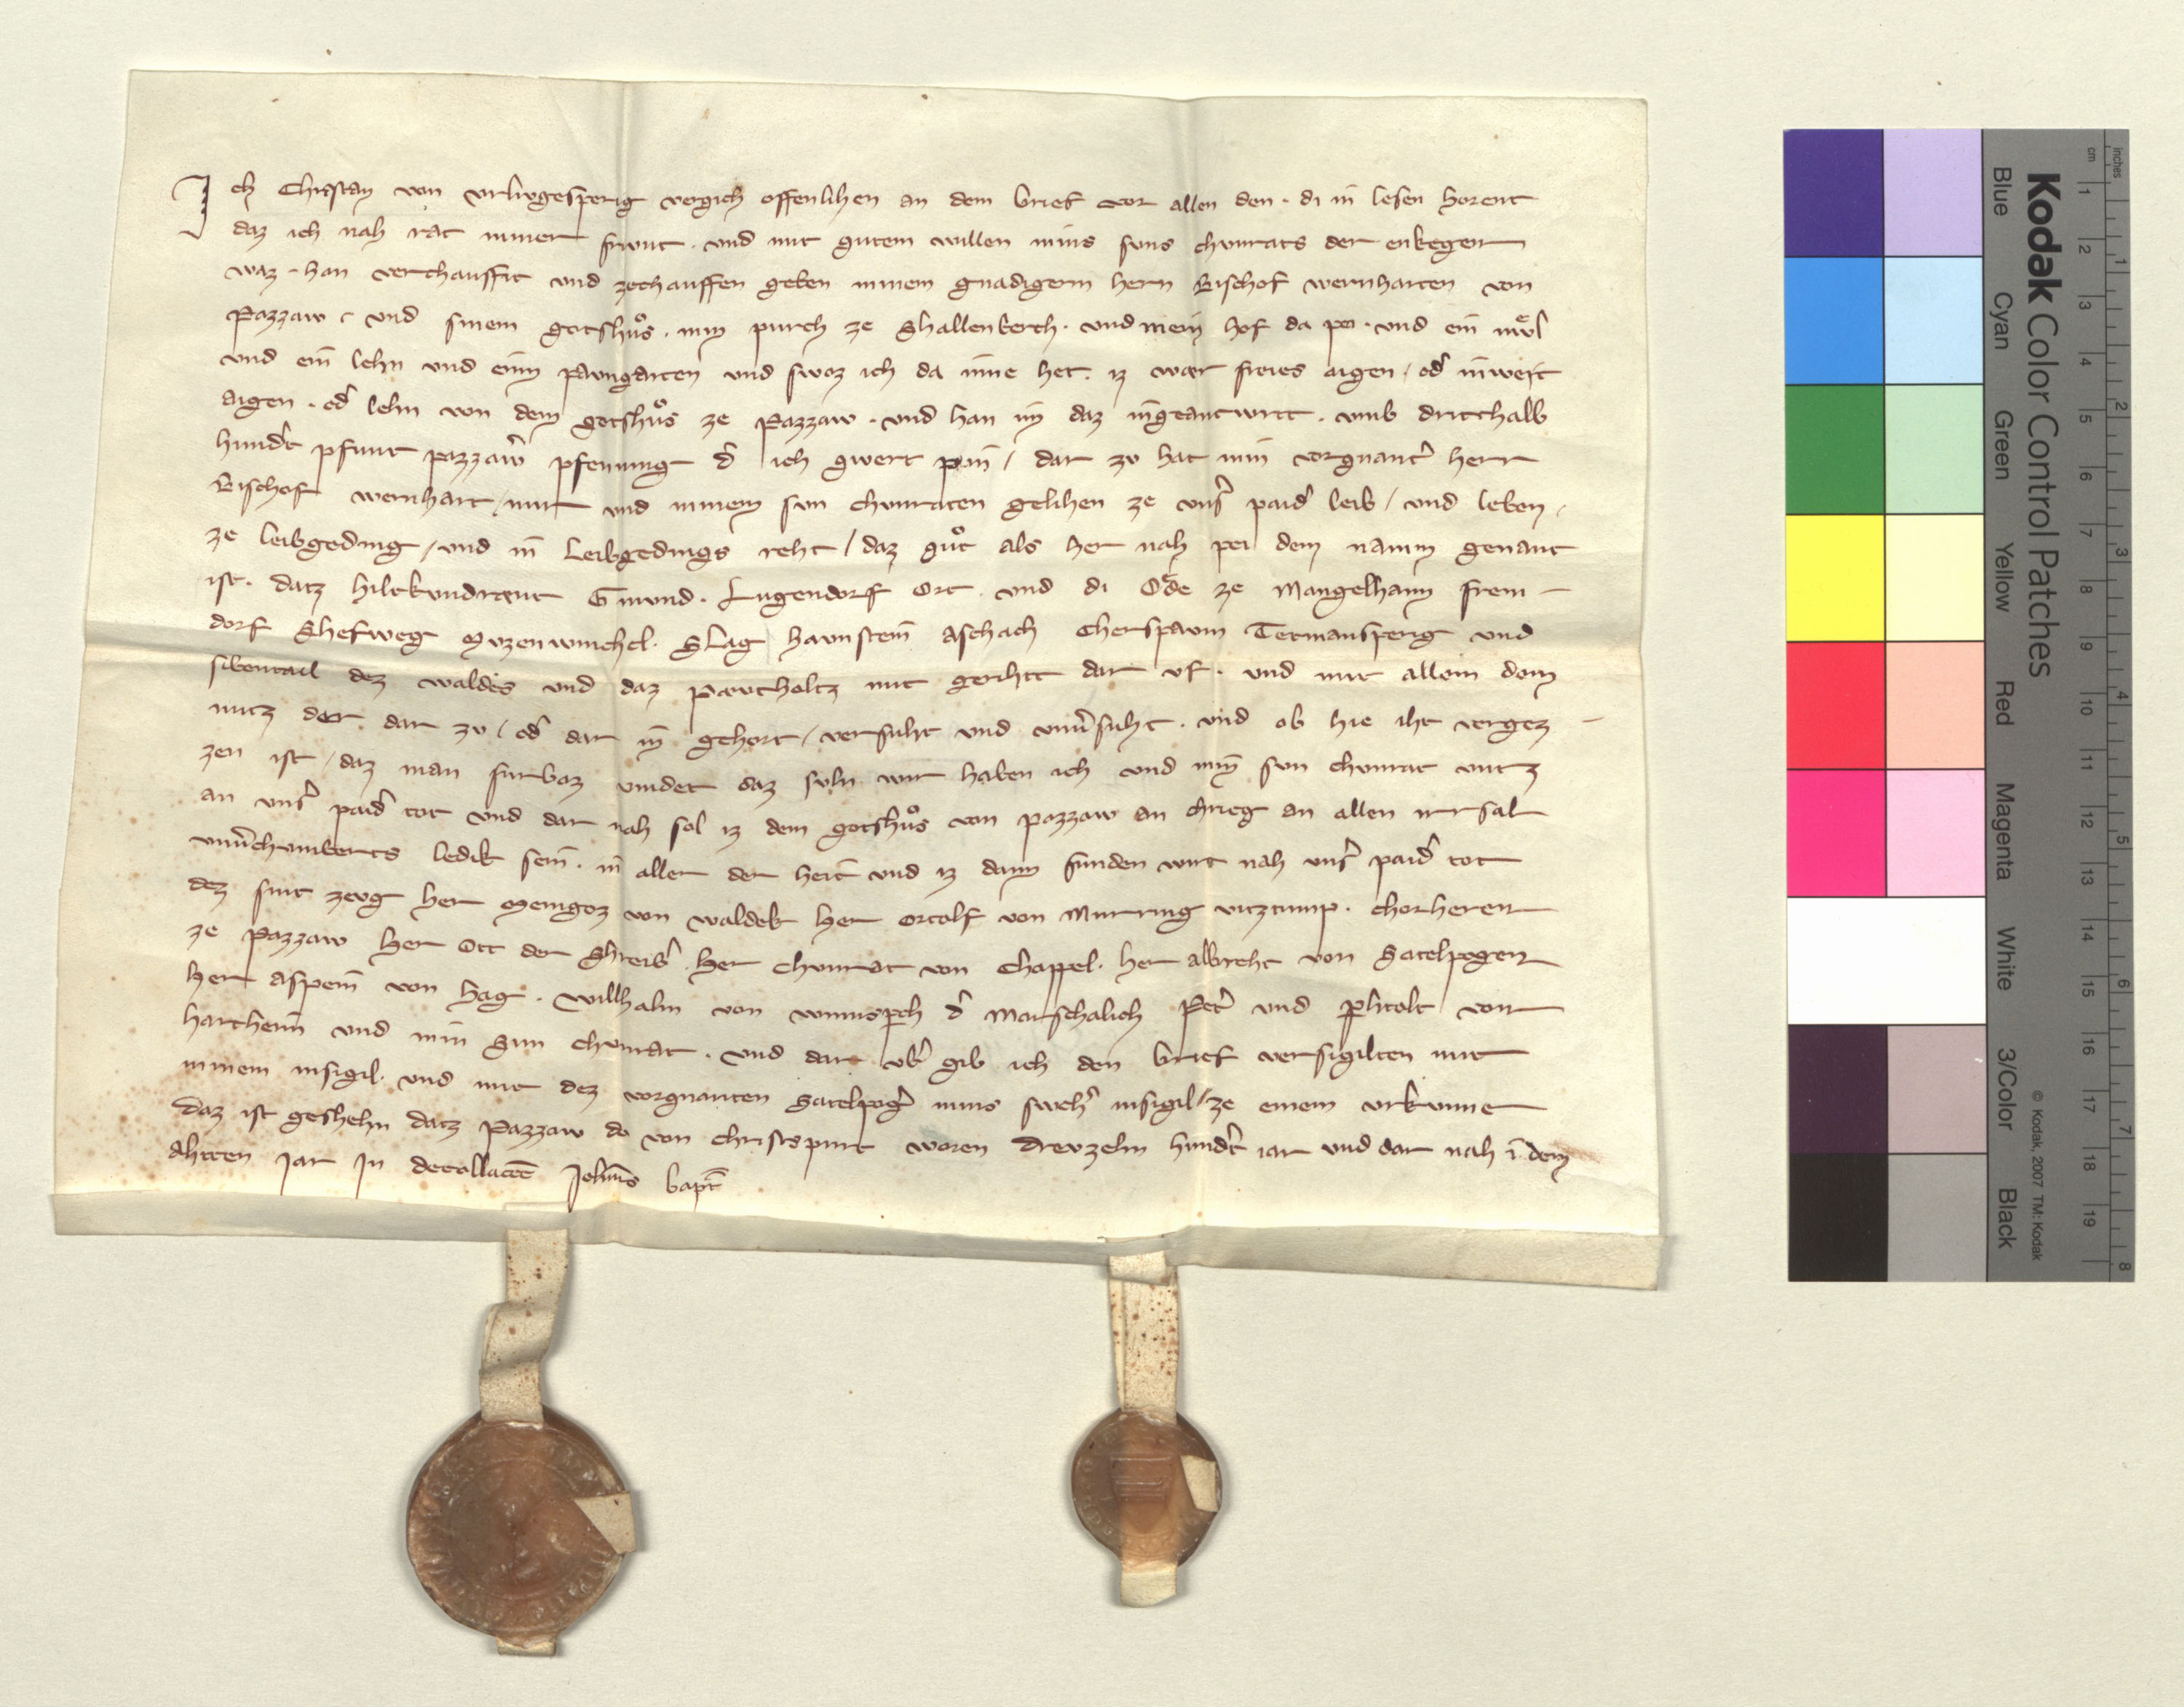 Ich Christan von vrlivgesperig vergich offenlihen an dem brief vor allen den · di in lesen horent
daz ich nah rat miner frvnt · vnd mit gutem willen mins svns chvnrats der enkegen
waz · han verchauffit vnd zechauffen geben minem gnadigem hern Bischof wernharten von
Pazzaw · vnd sinem gotshuͦs · min purch ze Shallenberch · vnd mein hof da pei · vnd ein mvͤl
vnd ein lehn vnd einn pavngarten vnd swaz ich da inne het · iz wær freies aigen / od̄ inwert
aigen · od̄ lehn von dem gotshuͦs ze Pazzaw · vnd han im daz ingeantwrtt · vmb dritthalb
hundt̄ pfunt pazzaw̄ pfenning d̄ ich gwert pin / dar zv hat min vorgnant̄ herr
Bischof wernhart / mir vnd minem svn chvnraten gelihen ze vns̄ paid̄ leib / vnd leben /
ze leibgeding / vnd in Leibgedings reht / daz guͦt als her nah pei dem namm genant
ist · datz hiltkvndrævt Gmvnd · Lugendorf Ort vnd di Oͤde ze Mangelham frein —
dorf Shefweg Mvzenwinchel · Slag havnstein Aschach Cherspavm Tetmansperig vnd
sibentail dez waldes vnd daz pavtholtz mit gerihtt dar vf · vnd mit allem dem
nutz der dar zv / od̄ dar in gehort / versuht vnd vnv̄suht · vnd ob hie iht vergez —
zen ist / daz man furbaz vindet daz svln wir haben ich vnd min svn chvnrat vntz
an vns̄ paid̄ tot vnd dar nah sol iz dem gotshuͦs von pazzaw an chrieg an allen irrsal
vnv̄chvmberts ledik sein · in aller der heit vnd iz dann funden wirt nah vns̄ paid̄ tot
dez sint zevg her Meingoz von waldek her ortolf von Murring vitztump · chorheren
ze Pazzaw her Ott der Shreib̄ · her Chvnrat von Chappel · her albreht von Satelpogen
her aspein von hag · Willhalm von winnsperch d̄ Marschalich Pet̄ vnd plitolt von
hartheim vnd min Svn chvnrat · vnd dar vb̄ gib ich den brief versigilten mit
minem insigil · vnd mit dez vorgnanten Satelpoḡ mins sweh̄ insigil / ze einem vrkvnne
daz ist geshehn datz Pazzaw do von christspurt waren drevzehn hundt̄ iar vnd dar nah ī dem
Ahtten Jar In decollac̄oe Joh̄nis bapt̄
Kodak Color Control Patches
Blue Cyan Green Yellow Red Magenta White 3/Color Black
© Kodak, 2007 TM: Kodak
inches 1 2 3 4 5 6 7 8
cm 1 2 3 4 5 6 7 8 9 10 11 12 13 14 15 16 17 18 19